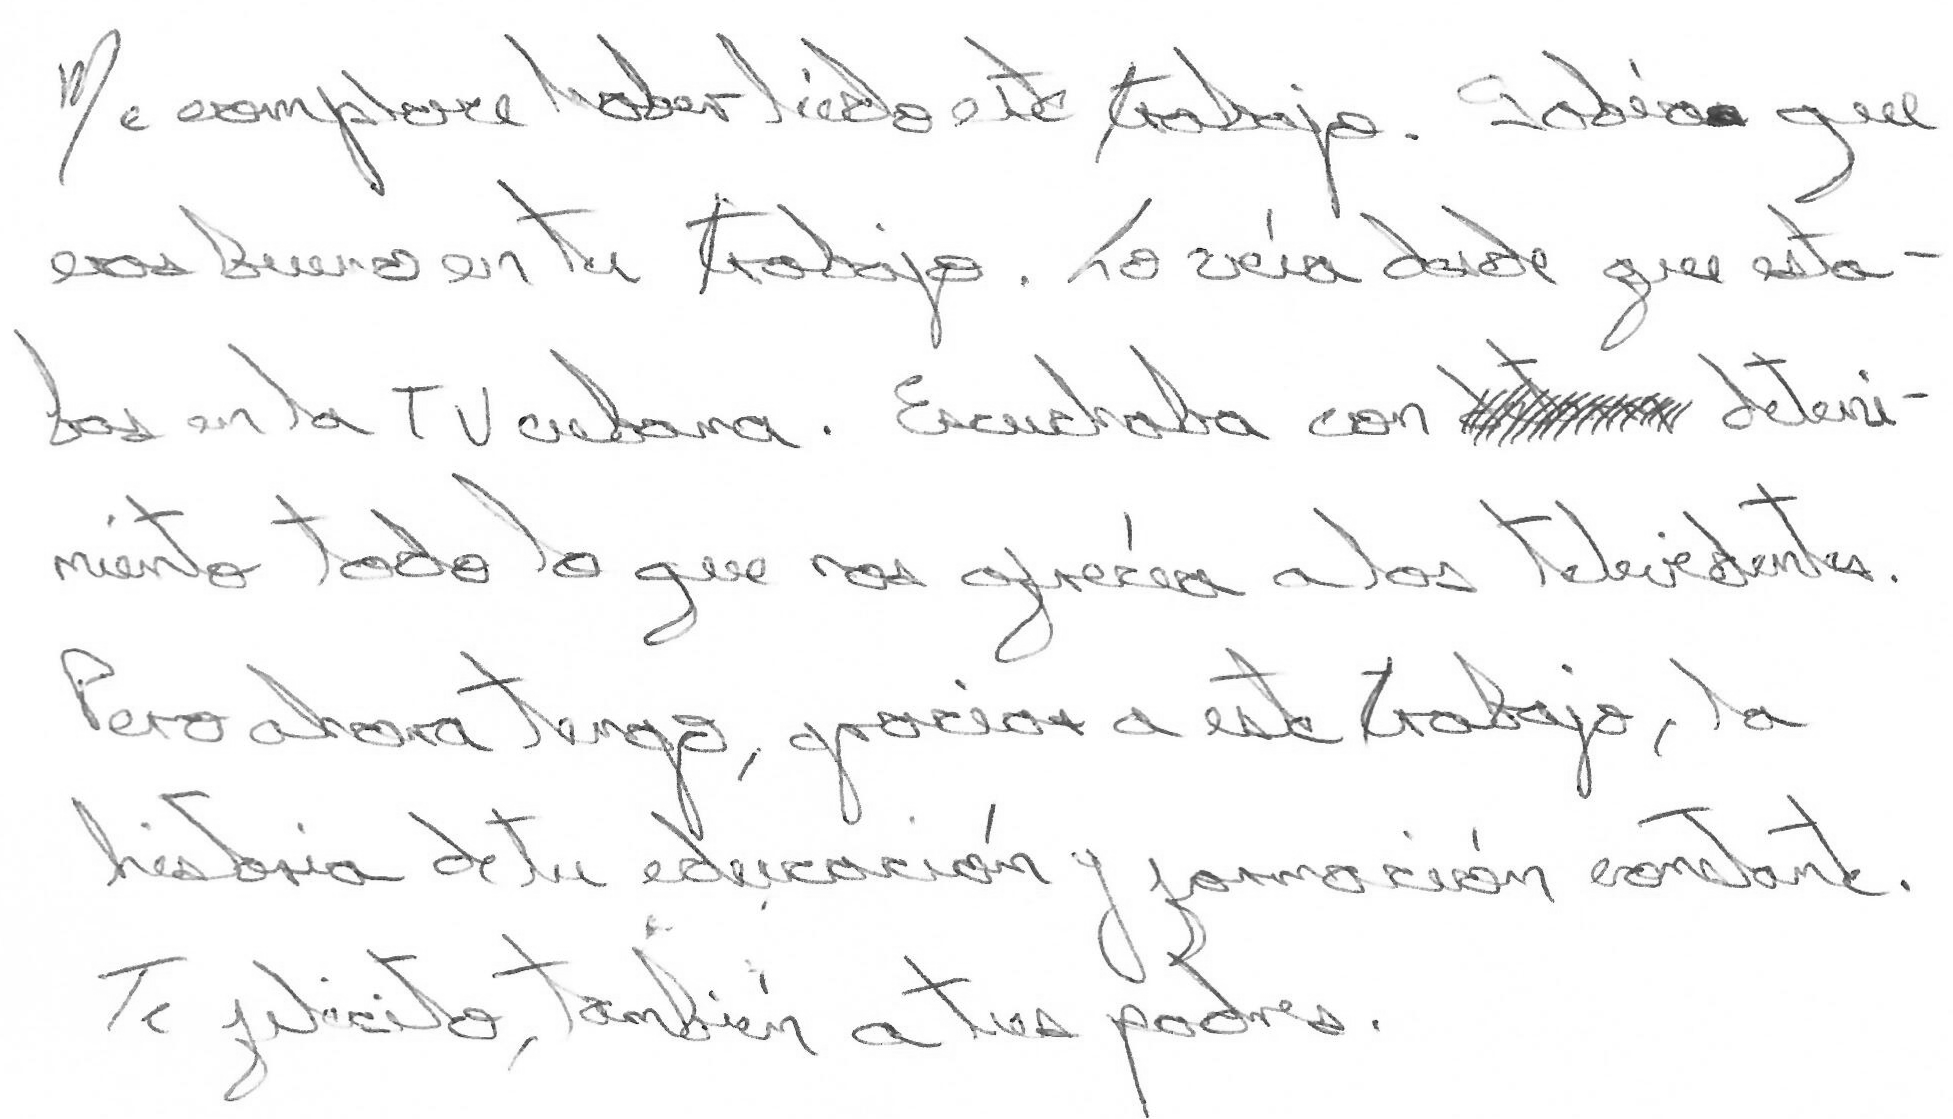 Me complace haber leído este trabajo. Sabía que
eras bueno en tu trabajo. Lo veía desde que esta-
bas en la TV cubana. Escuchaba con deteni-
miento todo lo que nos ofrecía a los televidentes.
Pero ahora tengo, gracias a este trabajo, la
historia de tu educación y formación constante.
Te felicito, también a tus padres.